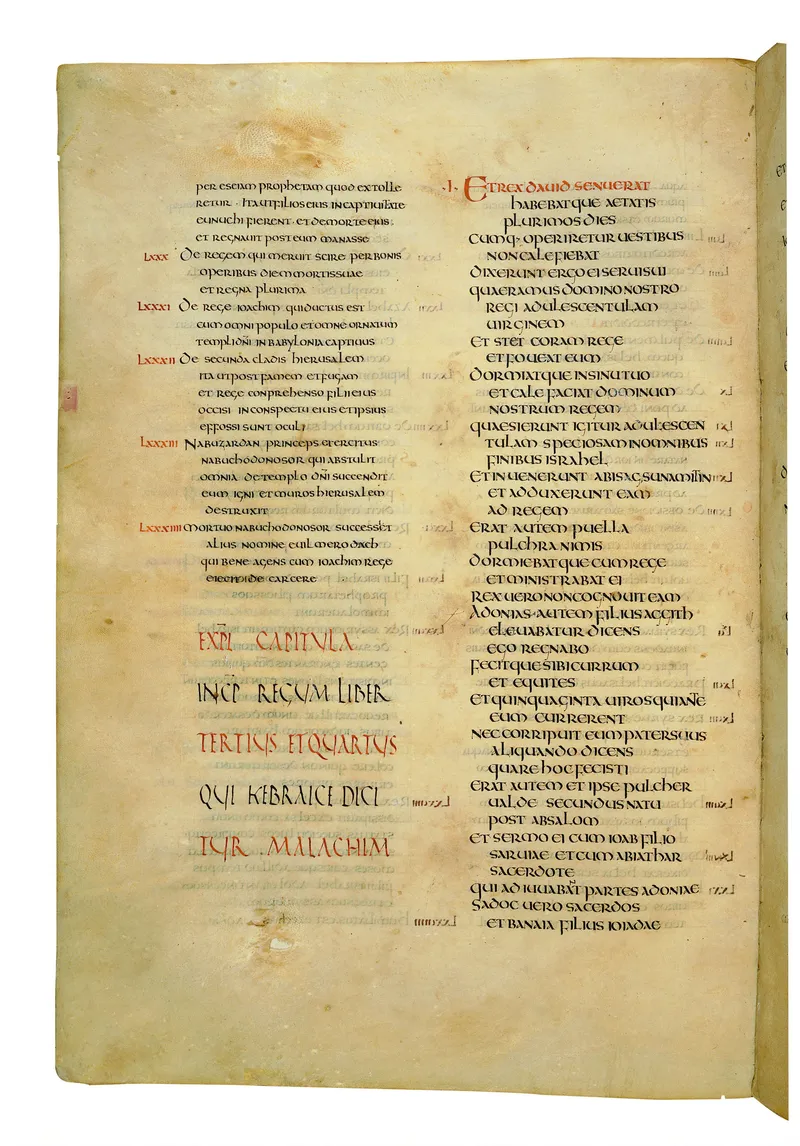 PER ESEIAM PROPHETAM QUOD EXTOLLE
RETUR · ITA UT FILIOS EIUS IN CAPTIUITATE
EUNUCHI FIERENT · ET DE MORTE EIUS
ET REGNAUIT POST EUM MANASSE
LXXX DE REGEM QUI MERUIT SCIRE PER BONIS
OPERIBUS DIEM MORTIS SUAE
ET REGNA PLURIMA
LXXXI DE REGE IOACHIM QUI DUCTUS EST
CUM OMNI POPULO ET OMNE ORNATUM
TEMPLI DNI IN BABYLONIA CAPTIUUS
LXXXII DE SECUNDA CLADIS HIERUSALEM
ITA UT POST FAMEM ET FUGAM
ET REGE CONPREHENSO FILII EIUS
OCCISI IN CONSPECTU EIUS ET IPSIUS
EFFOSSI SUNT OCULI
LXXXIII NABUZARDAN PRINCEPS EXERCITUS
NABUCHODONOSOR QUI ABSTULIT
OMNIA DE TEMPLO DNI SUCCENDIT
EUM IGNI ET MUROS HIERUSALEM
DESTRUXIT
LXXXIIII MORTUO NABUCHODONOSOR SUCCESSET
ALIUS NOMINE EUILMERODACH
QUI BENE AGENS CUM IOACHIM REGE
EIECIT DE CARCERE
EXPL CAPITULA
INCP REGUM LIBER
TERTIUS ET QUARTUS
QUI HEBRAICE DICI
TUR MALACHIM
·I· ET REX DAUID SENUERAT
HABEBATQUE AETATIS
PLURIMOS DIES
CUMQ· OPERIRETUR UESTIBUS
NON CALEFIEBAT
DIXERUNT ERGO EI SERUI SUI
QUAERAMUS DOMINO NOSTRO
REGI ADULESCENTULAM
UIRGINEM
ET STET CORAM REGE
ET FOUEAT EUM
DORMIATQUE IN SINU TUO
ET CALEFACIAT DOMINUM
NOSTRUM REGEM
QUAESIERUNT IGITUR ADULESCEN
TULAM SPECIOSAM IN OMNIBUS
FINIBUS ISRAHEL
ET INUENERUNT ABISAG SUNAMITIN
ET ADDUXERUNT EAM
AD REGEM
ERAT AUTEM PUELLA
PULCHRA NIMIS
DORMIEBATQUE CUM REGE
ET MINISTRABAT EI
REX UERO NON COGNOUIT EAM
ADONIAS AUTEM FILIUS AGGITH
ELEUABATUR DICENS
EGO REGNABO
FECITQUE SIBI CURRUM
ET EQUITES
ET QUINQUAGINTA UIROS QUI ANTE
EUM CURRERENT
NEC CORRIPUIT EUM PATER SUUS
ALIQUANDO DICENS
QUARE HOC FECISTI
ERAT AUTEM ET IPSE PULCHER
UALDE SECUNDUS NATU
POST ABSALOM
ET SERMO EI CUM IOAB FILIO
SARUIAE ET CUM ABIATHAR
SACERDOTE
QUI ADIUUABAT PARTES ADONIAE
SADOC UERO SACERDOS
ET BANAIA FILIUS IOIADAE